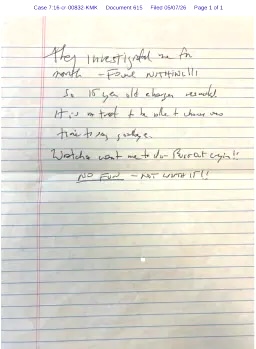 Case 7:16-cr-00832-KMK Document 615 Filed 05/07/26 Page 1 of 1
They investigated me for
month - FOUND NOTHING!!!
So 15 year old charges
It is to be able to
time to say goodbye.
want me to do -
NO FUN - NOT WORTH IT!!